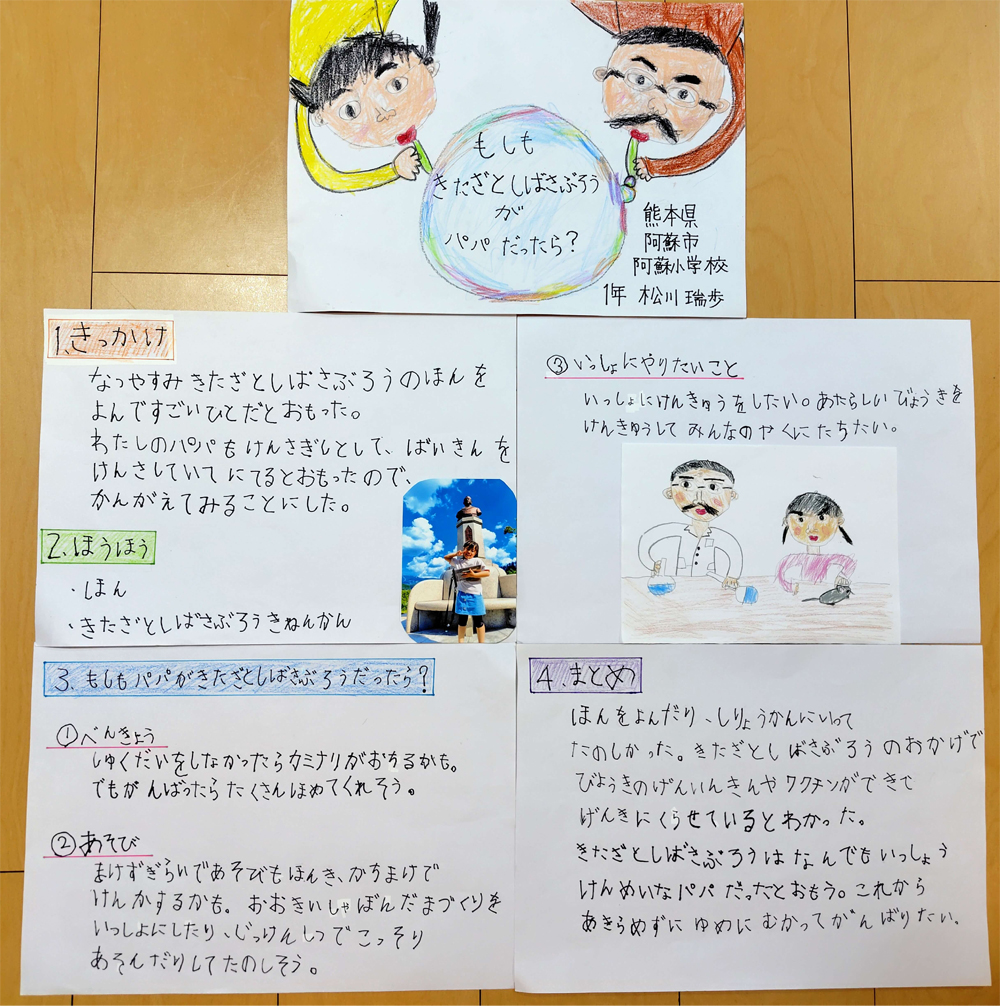 もしも
きたざとしばさぶろう
が
パパだったら？
熊本県
阿蘇市
阿蘇小学校
1年 松川 瑞歩
1、きっかけ
なつやすみきたざとしばさぶろうのほんを
よんですごいひとだとおもった。
わたしのパパもけんさぎしとして、ばいきんを
けんさしていてにてるとおもったので、
かんがえてみることにした。
2、ほうほう
・ほん
・きたざとしばさぶろうきねんかん
3、もしもパパがきたざとしばさぶろうだったら？
①べんきょう
しゅくだいをしなかったらカミナリがおちるかも。
でもがんばったらたくさんほめてくれそう。
②あそび
まけずぎらいであそびもほんき、かちまけで
けんかするかも。おおきいしゃぼんだまづくりを
いっしょにしたり、じっけんしつでこっそり
あそんだりしてたのしそう。
③いっしょにやりたいこと
いっしょにけんきゅうをしたい。あたらしいびょうきを
けんきゅうしてみんなのやくにたちたい。
4、まとめ
ほんをよんだり、しりょうかんにいって
たのしかった。きたざとしばさぶろうのおかげで
びょうきのげんいんきんやワクチンができて
げんきにくらせているとわかった。
きたざとしばさぶろうはなんでもいっしょう
けんめいなパパだったとおもう。これから
あきらめずにゆめにむかってがんばりたい。